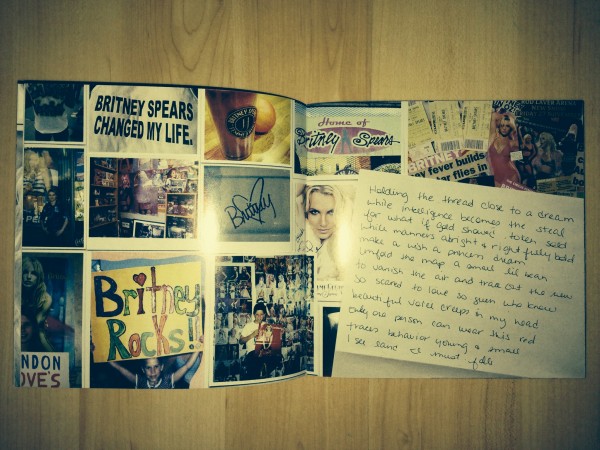 BRITNEY SPEARS
CHANGED MY LIFE.
Britney
Britney
Rocks!
NDON
OVE'S
Home of
Britney Spears
BRITNE
y fever builds
ter flies in
Holding the thread close to a dream
while intelligence becomes the steal
for what if gold shows token seed
while manners abright & rightfully bold
make a wish a princess dream
unfold the map a small lil bean
to vanish the air and trace out the new
so scared to love so such who knew
beautiful voice creeps in my head
only one person can wear this red
traces behavior young & small
I see land I must fall